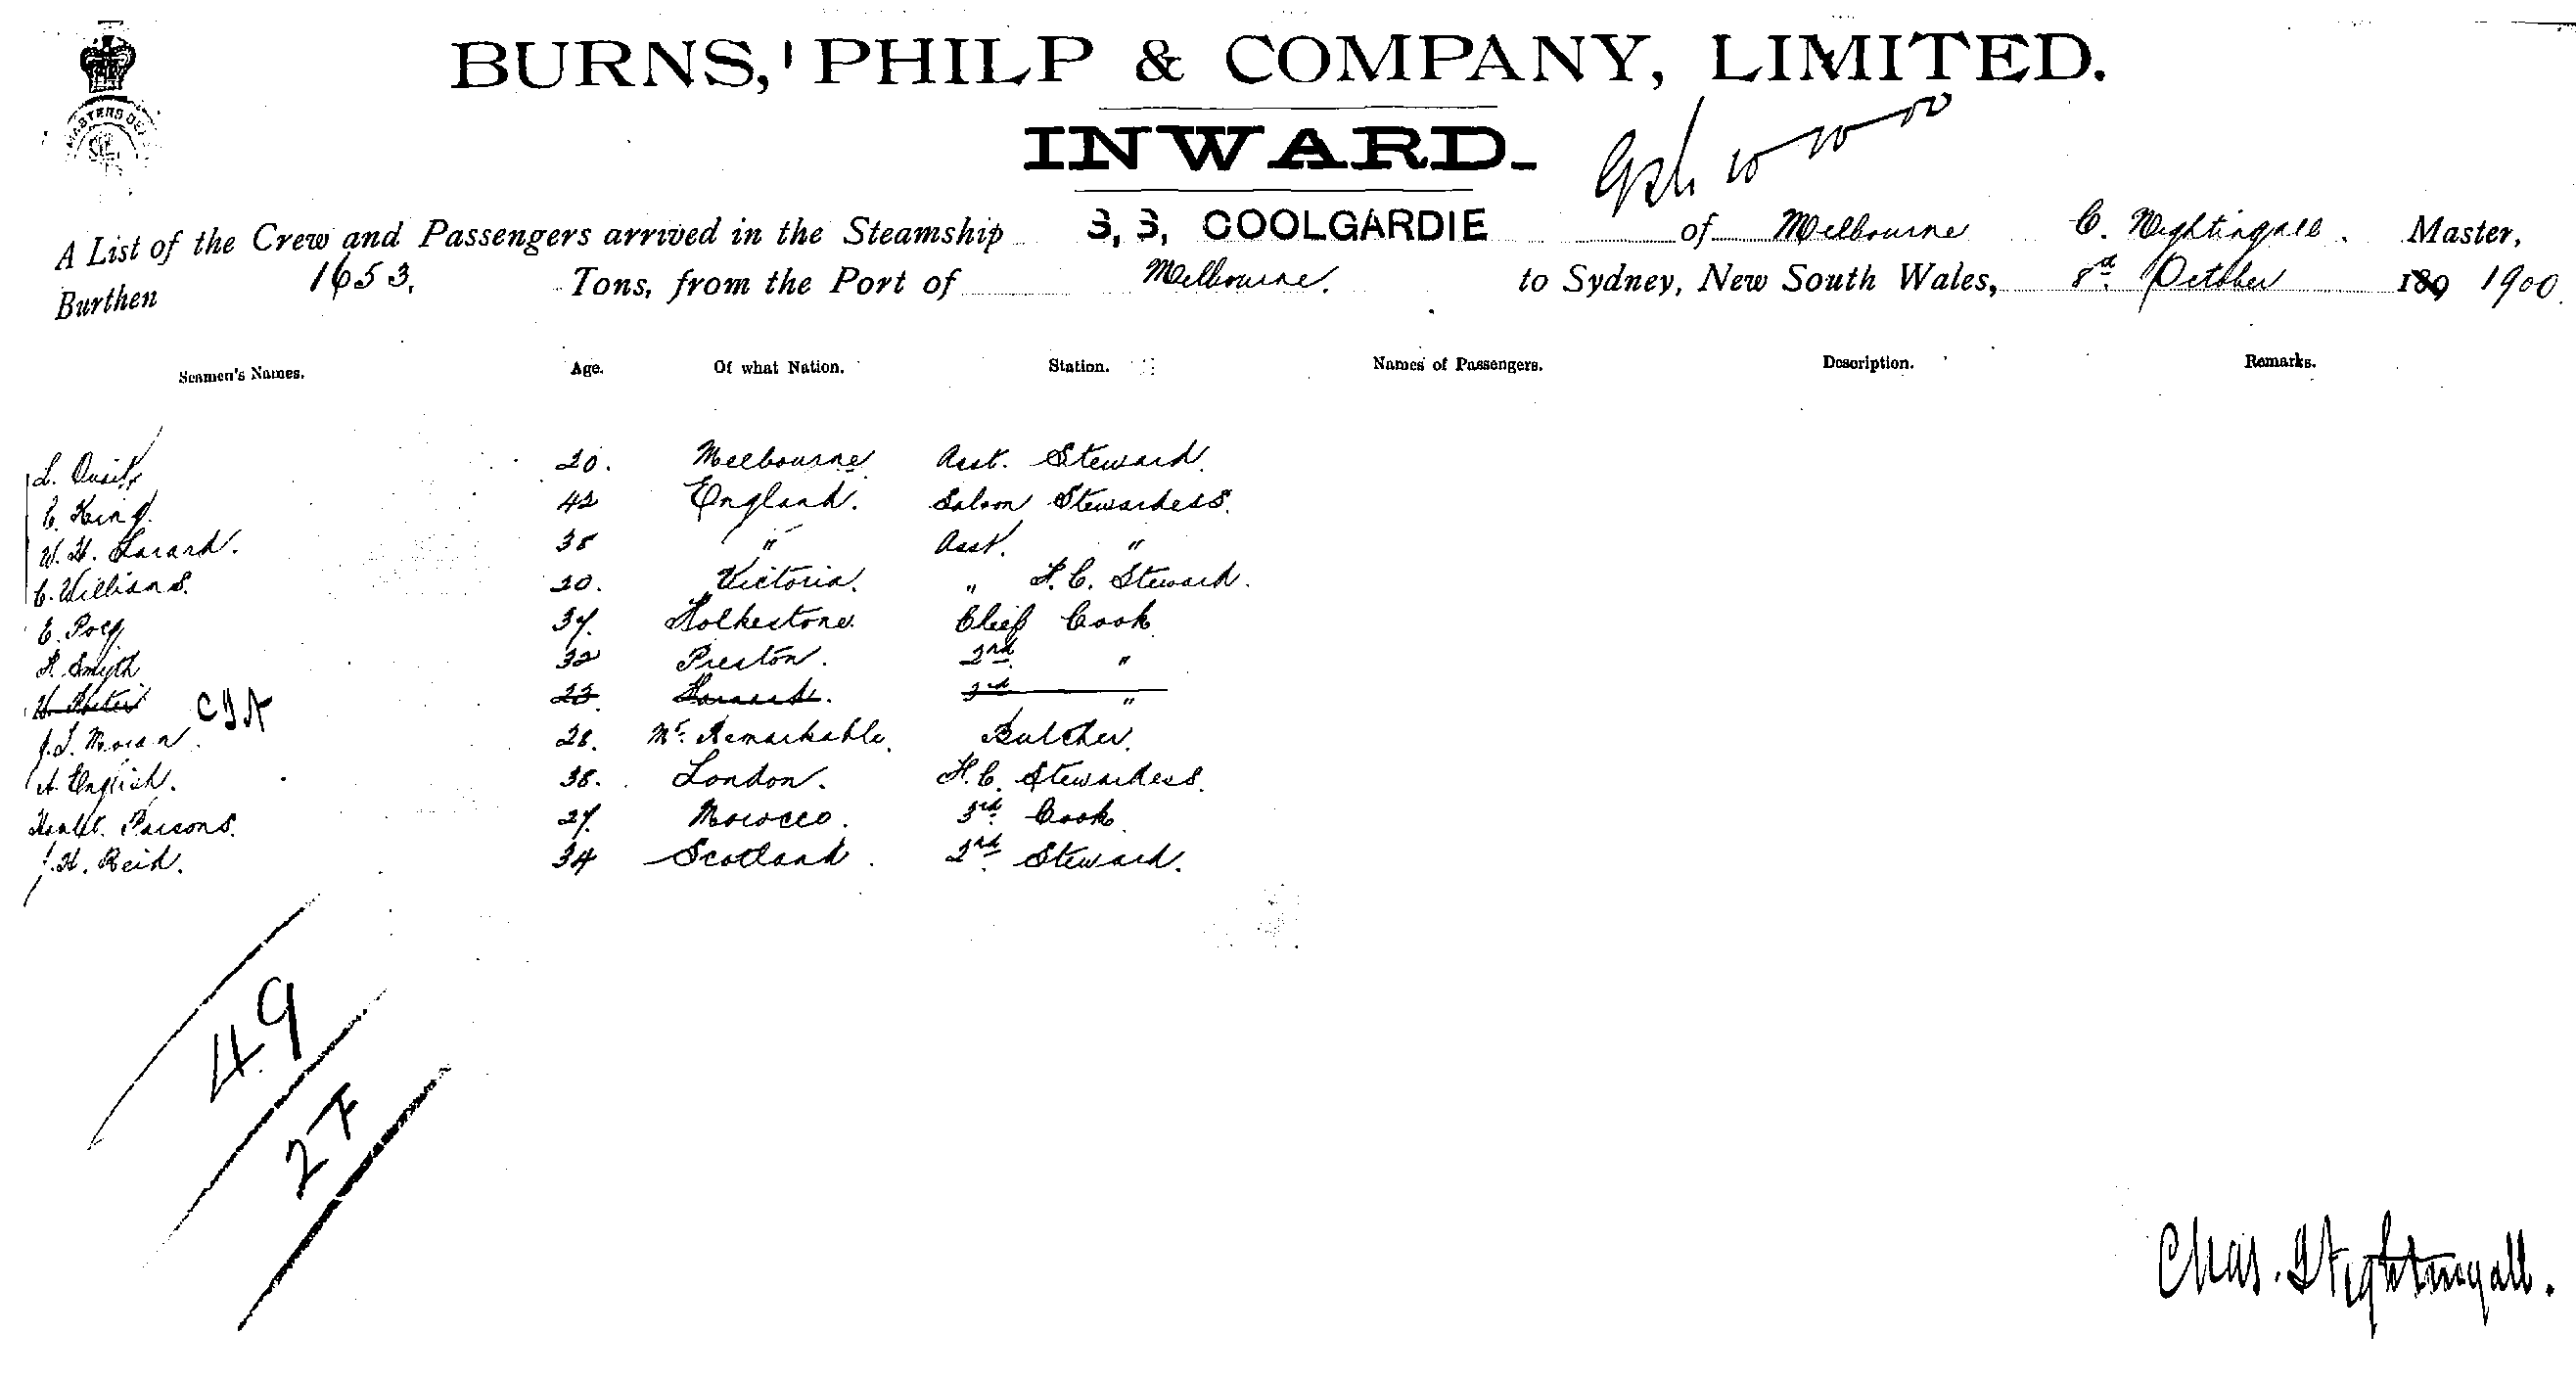 BURNS, PHILP & COMPANY, LIMITED.
INWARD.
A List of the Crew and Passengers arrived in the Steamship S, S, COOLGARDIE of Melbourne C. Nightingall. Master,
Burthen 1653. Tons, from the Port of Melbourne. to Sydney, New South Wales, 8th October 189 1900.
Seamen's Names. Age. Of what Nation. Station. Names of Passengers. Description. Remarks.
L. 20. Melbourne Asst. Steward.
C. King. 42 England. Saloon Stewardess.
W. H. Larard. 38 " Asst. "
C. Williams. 20. Victoria. " F. C. Steward.
E. 37. Folkestone. Chief Cook
F. Smyth 32 Preston. 2nd "
23. 3rd "
J. L. Moran. 28. Mt. Remarkable. Butcher.
A. English. 38. London. F. C. Stewardess.
Parsons. 27. Morocco. 3rd Cook.
J. H. Reid. 34 Scotland. 2nd Steward.
49
27
Chas. Nightingall.